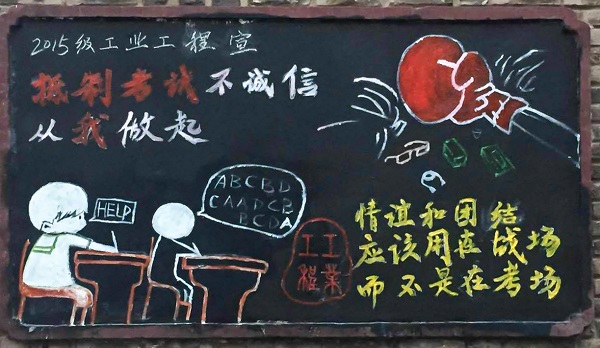 2015级工业工程宣
抵制考试不诚信
从我做起
HELP
ABCBD
CAAPCB
BCDA
情谊和团结
应该用在战场
而不是在考场
工工
程業